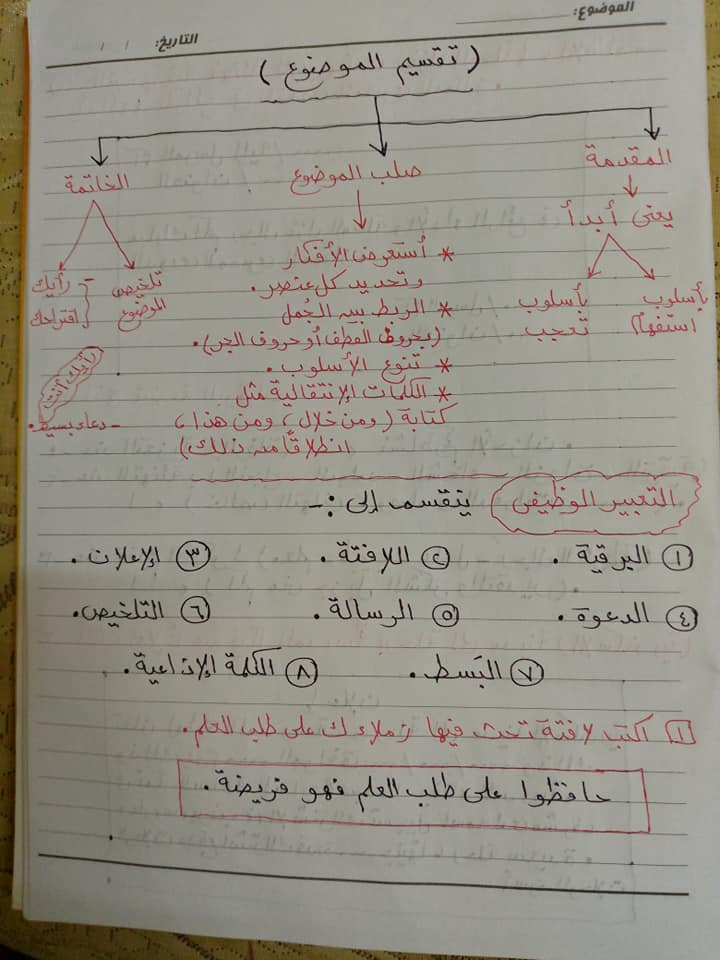 الموضوع:
التاريخ: / /
( تقسيم الموضوع )
المقدمة
صلب الموضوع
الخاتمة
يعنى أبدأ
بأسلوب استفهام
بأسلوب تعجب
* أستعرض الأفكار
وتحديد كل عنصر.
* الربط بين الجُمل
(بحروف العطف أو حروف الجر).
* تنوع الأسلوب.
* الكلمات الإنتقالية مثل
كتابة (ومن خلال، ومن هذا،
انطلاقًا من ذلك)
تلخيص الموضوع
- رأيك
اقتراحك
رأيك أنت
- دعاء بسيط.
التعبير الوظيفى ينقسم إلى :-
١ البرقية. ٢ اللافتة. ٣ الإعلان.
٤ الدعوة. ٥ الرسالة. ٦ التلخيص.
٧ البَسط. ٨ الكلمة الإذاعية.
١ اكتب لافتة تحث فيها زملاءك على طلب العلم.
حافظوا على طلب العلم فهو فريضة.